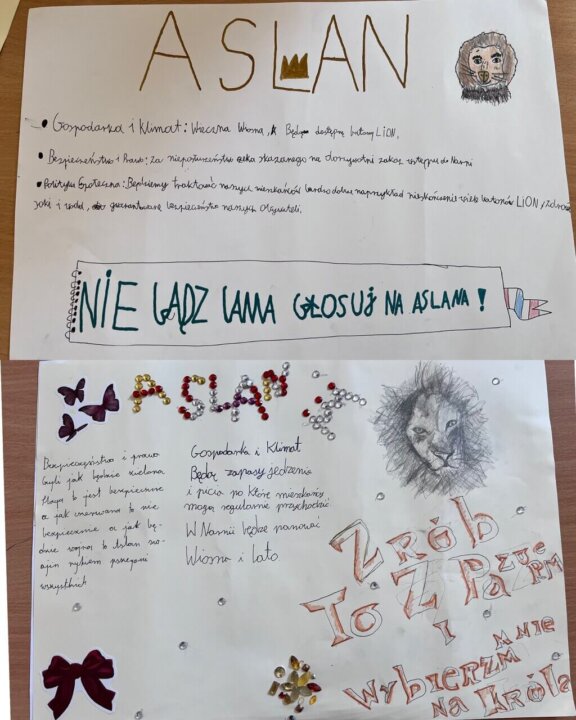 ASLAN
• Gospodarka i Klimat: Wieczna Wiosna, Będą dostępne batony LION.
• Bezpieczeństwo i Prawo: za nieposłuszeństwo skazanego na dożywotni zakaz wstępu do Narni
• Polityka Społeczna: Będziemy traktować naszych mieszkańców bardzo dobrze naprzykład nieskończenie wiele batonów LION, zdrowe
soki i wodę, gwarantowane bezpieczeństwo naszych obywateli.
NIE BĄDZ LAMA GŁOSUJ NA ASLANA!
ASLAN
Bezpieczeństwo i prawo
czyli jak będzie zielona
flaga to jest bezpiecznie
a jak czerwona to nie
bezpiecznie a jak bę-
dzie wojna to Aslan sw-
oim rykiem
wszystkich
Gospodarka i Klimat
Będą zapasy jedzenia
i picia po które mieszkańcy
mogą regularnie przychodzić
W Narnii będzie panować
Wiosna i Lato
ZRÓB
TO Z PAZUREM
I
WYBIERZ MNIE
NA KRÓLA